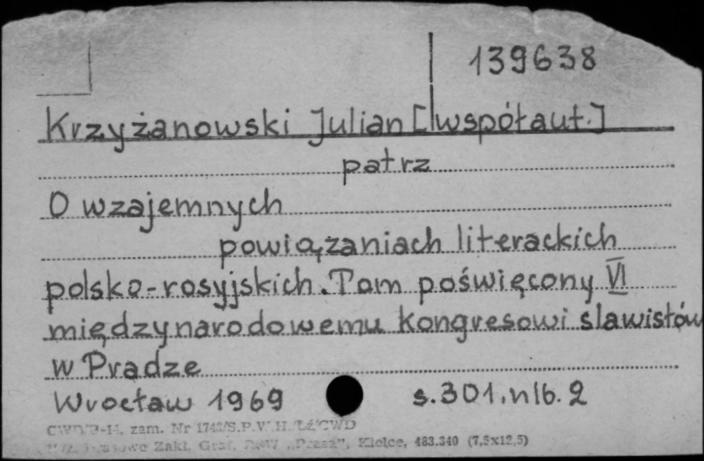 139638
Krzyżanowski Julian [współaut.]
patrz
O wzajemnych
powiązaniach literackich
polsko-rosyjskich. Tom poświęcony VI
międzynarodowemu kongresowi slawistów
w Pradze
Wrocław 1969 s. 301, nlb. 2
zam. Nr S.P.W.H.
Zakł. Graf. „Prasa", Kielce, 483.340 (7,5x12,5)